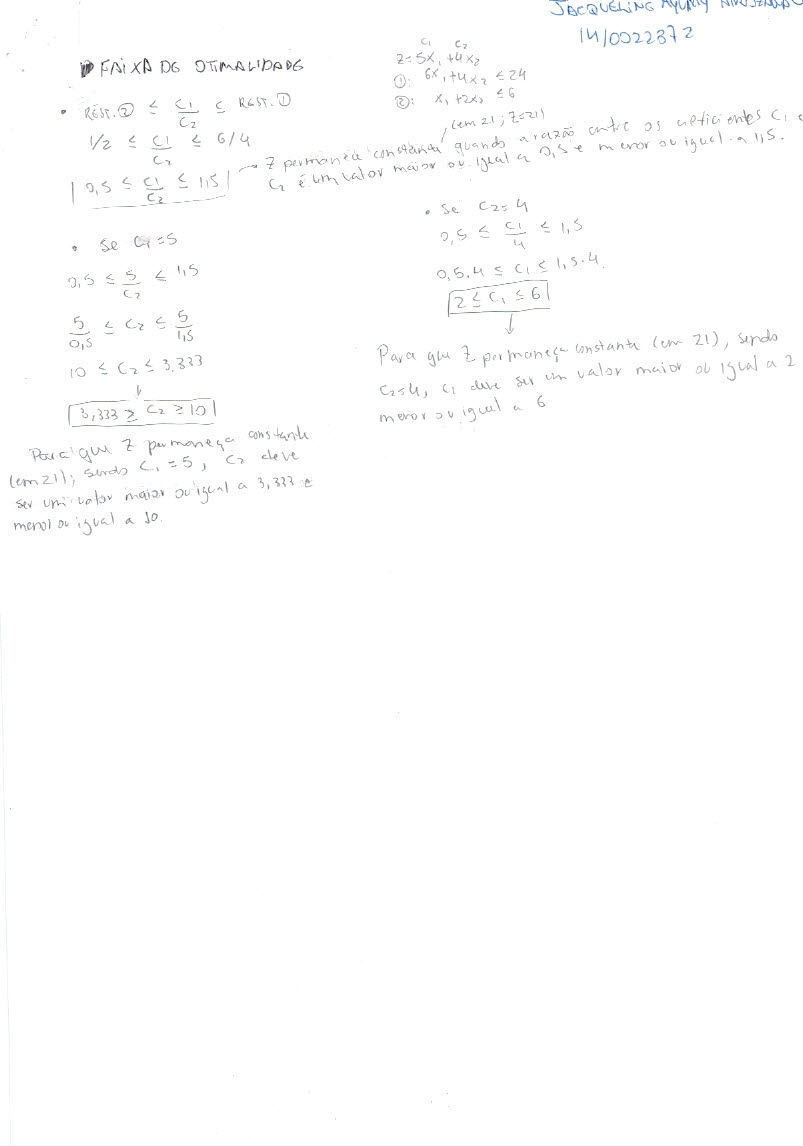 JACQUELINE AYUMY
14/0022372
FAIXA DE OTIMALIDADE
C1 C2
Z = 5x1 + 4x2
①: 6x1 + 4x2 ≤ 24
②: x1 + 2x2 ≤ 6
• REST. ② ≤ C1/C2 ≤ REST. ①
1/2 ≤ C1/C2 ≤ 6/4
0,5 ≤ C1/C2 ≤ 1,5
(em 21; Z=21)
→ Z permanece constante quando a razão entre os coeficientes C1 e
C2 é um valor maior ou igual a 0,5 e menor ou igual a 1,5.
• Se C1 = 5
0,5 ≤ 5/C2 ≤ 1,5
5/0,5 ≤ C2 ≤ 5/1,5
10 ≤ C2 ≤ 3,333
↓
3,333 ≥ C2 ≥ 10
Para que Z permaneça constante
(em 21); sendo C1 = 5, C2 deve
ser um valor maior ou igual a 3,333 e
menor ou igual a 10.
• Se C2 = 4
0,5 ≤ C1/4 ≤ 1,5
0,5.4 ≤ C1 ≤ 1,5.4.
2 ≤ C1 ≤ 6
↓
Para que Z permaneça constante (em 21), sendo
C2=4, C1 deve ser um valor maior ou igual a 2
menor ou igual a 6